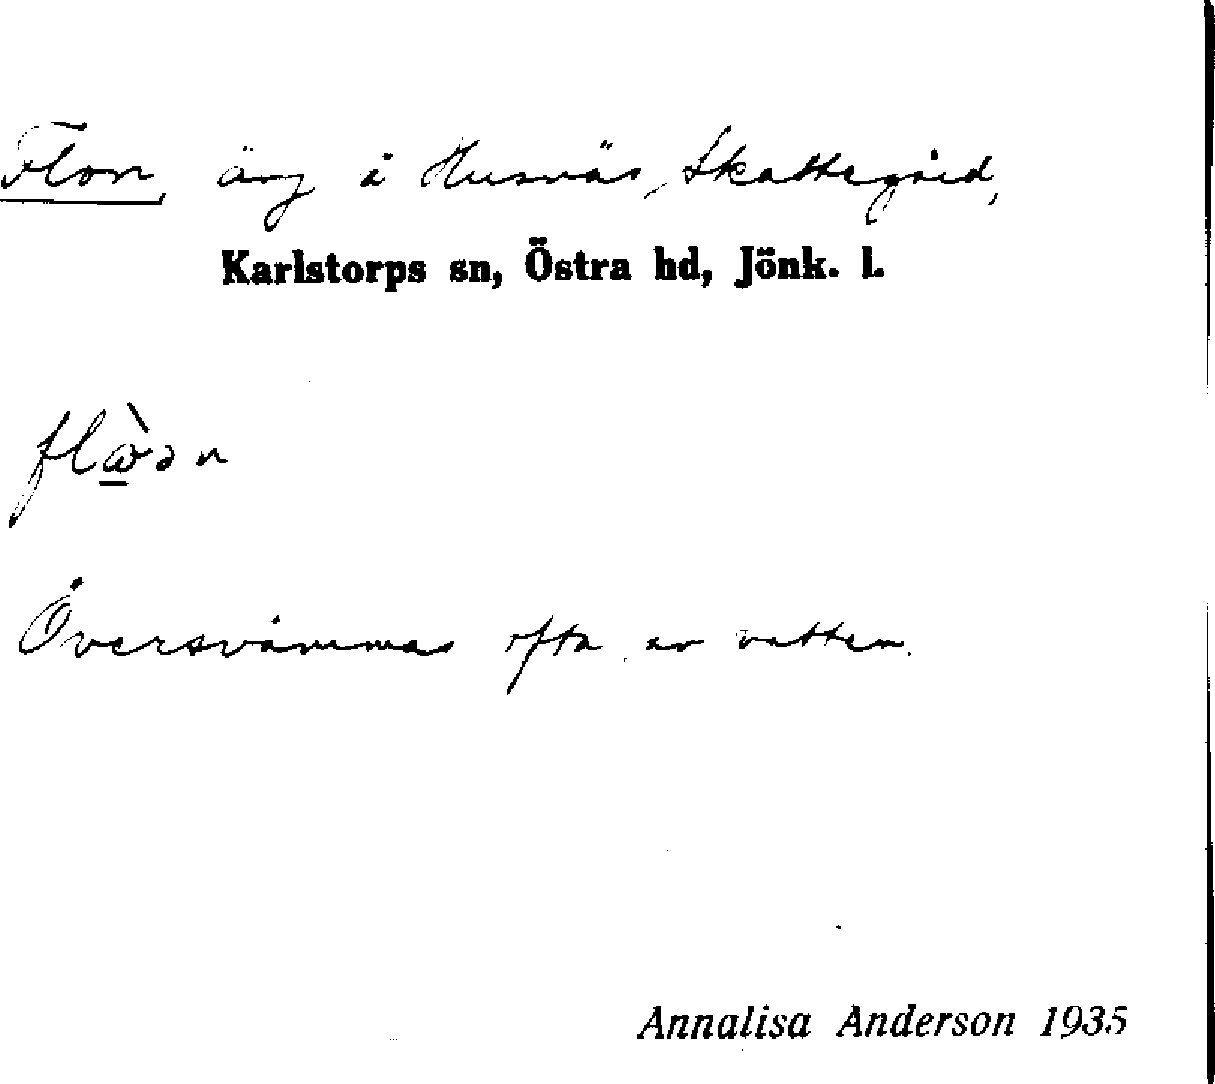 Flon, äng å Husnäs, Skattegård,
Karlstorps sn, Östra hd, Jönk. l.
Översvämmas ofta av vatten.
Annalisa Anderson 1935